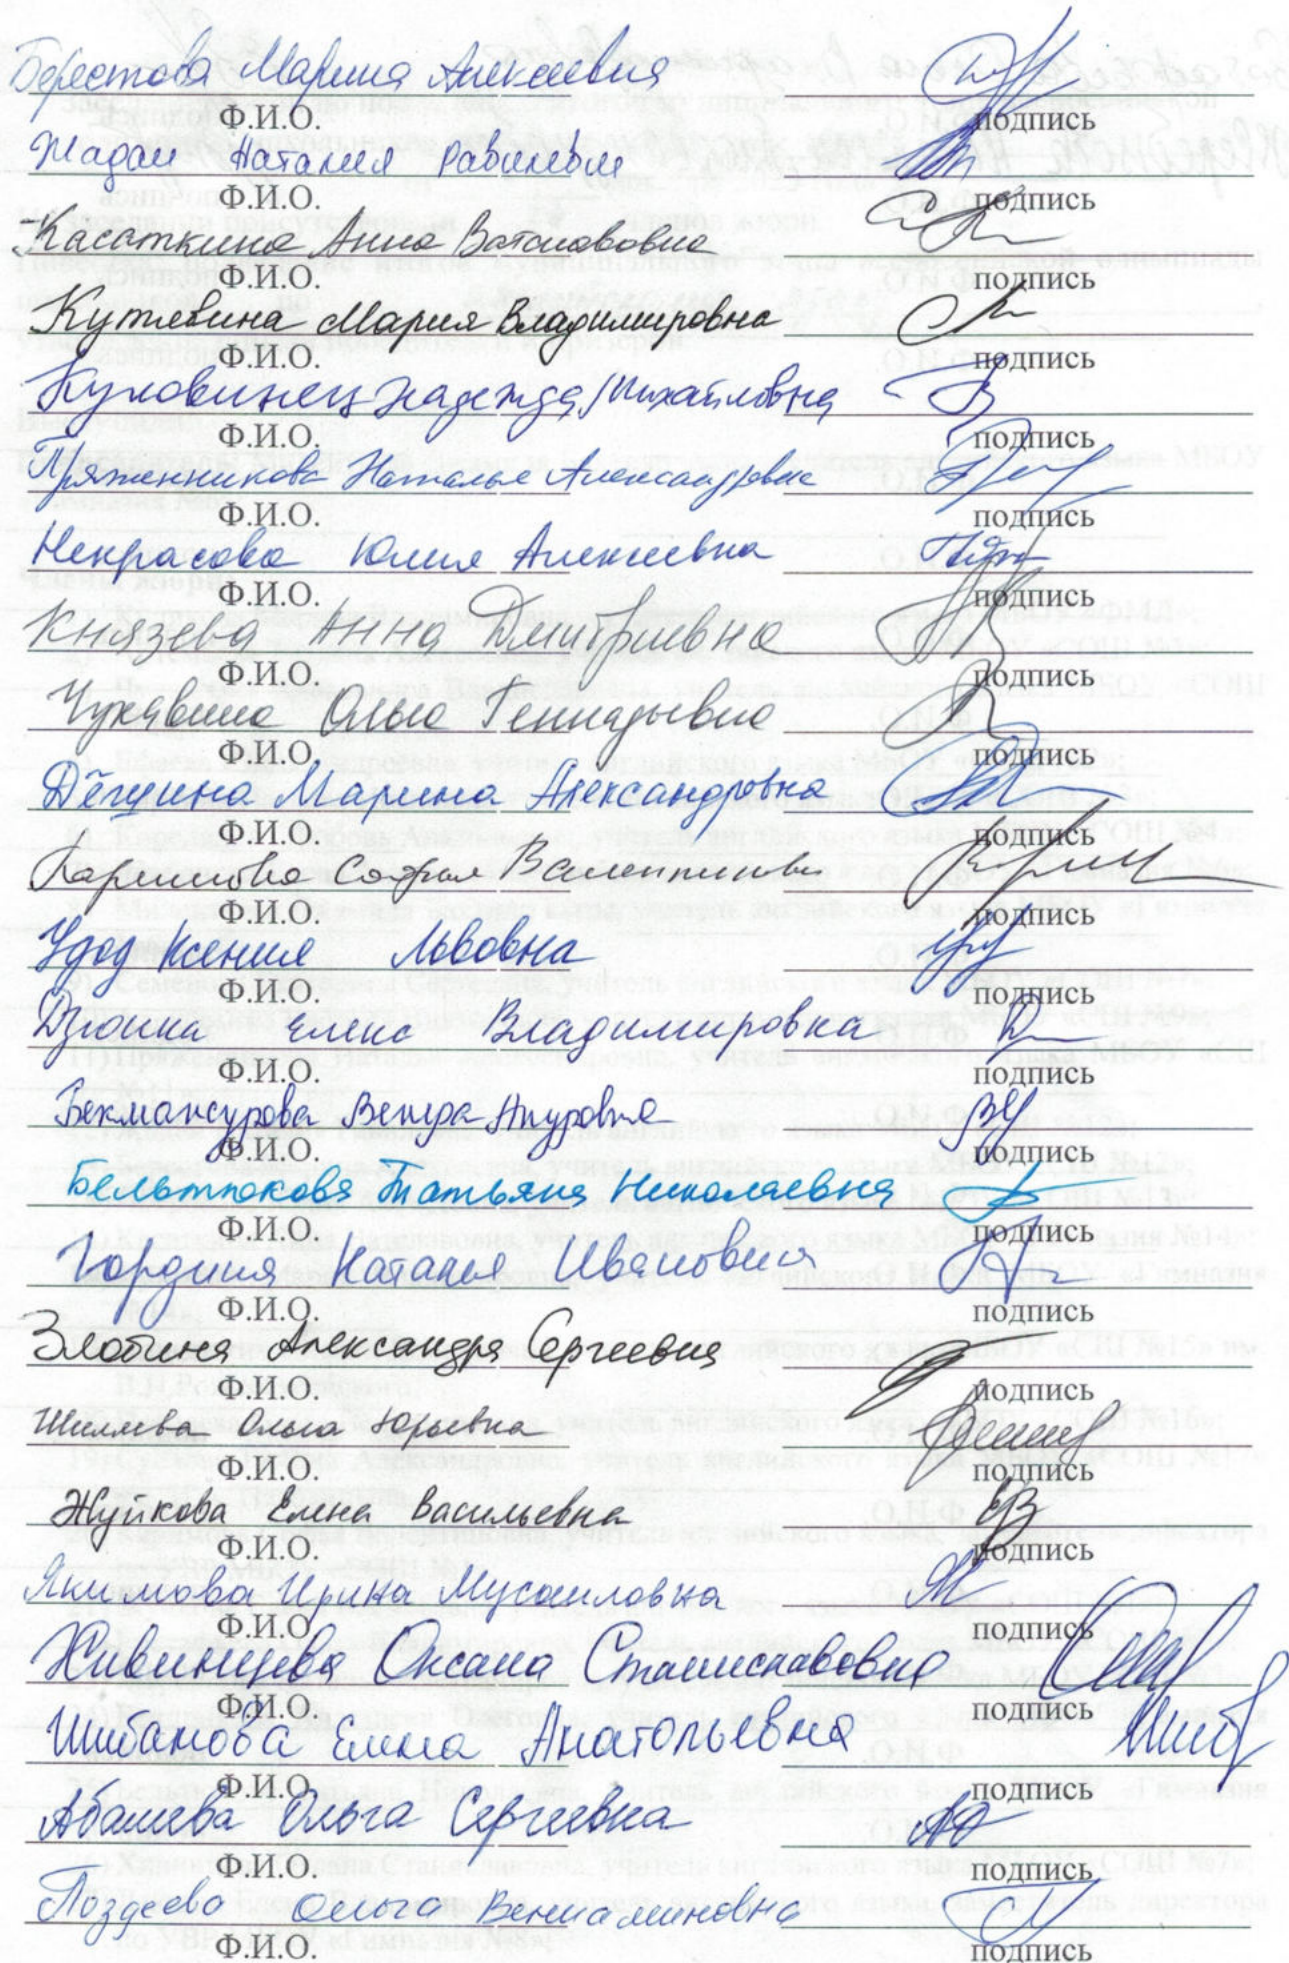 Берестова Марина Алексеевна
Ф.И.О. подпись
Жадан Наталия Равиловна
Ф.И.О. подпись
Касаткина Анна Ватславовна
Ф.И.О. подпись
Кутявина Мария Владимировна
Ф.И.О. подпись
Куловинец Надежда Михайловна
Ф.И.О. подпись
Пряженникова Наталья Александровна
Ф.И.О. подпись
Некрасова Юлия Алексеевна
Ф.И.О. подпись
Князева Анна Дмитриевна
Ф.И.О. подпись
Чукавина Ольга Геннадьевна
Ф.И.О. подпись
Дёгдина Марина Александровна
Ф.И.О. подпись
Каримова Софья Валентиновна
Ф.И.О. подпись
Удод Ксения Львовна
Ф.И.О. подпись
Дзюина Елена Владимировна
Ф.И.О. подпись
Бекмансурова Венера Ануровна
Ф.И.О. подпись
Бельтюкова Татьяна Николаевна
Ф.И.О. подпись
Гордина Наталья Ивановна
Ф.И.О. подпись
Злобина Александра Сергеевна
Ф.И.О. подпись
Шиляева Ольга Юрьевна
Ф.И.О. подпись
Жуйкова Елена Васильевна
Ф.И.О. подпись
Якимова Ирина Мусаиловна
Ф.И.О. подпись
Хивинцева Оксана Станиславовна
Ф.И.О. подпись
Шибанова Елена Анатольевна
Ф.И.О. подпись
Абашева Ольга Сергеевна
Ф.И.О. подпись
Поздеева Ольга Вениаминовна
Ф.И.О. подпись